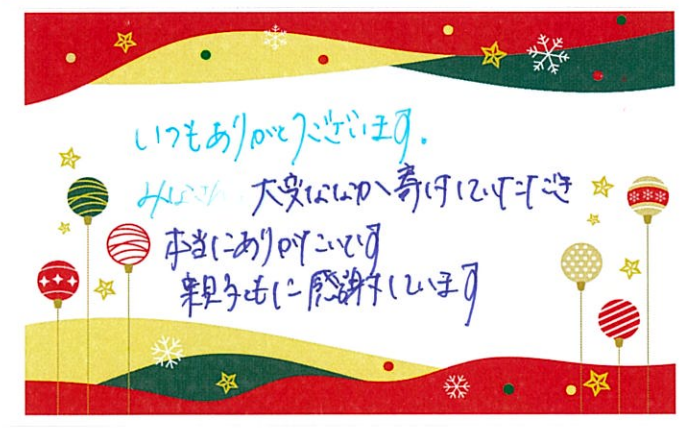 いつもありがとうございます.
みなさん 大変ななか 寄付していただき
本当にありがたいです
親子ともに感謝しています